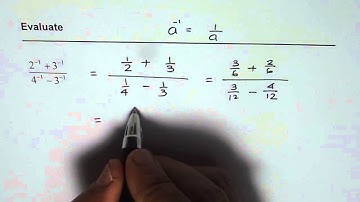 Evaluate a⁻¹ = 1/a
(2⁻¹ + 3⁻¹)/(4⁻¹ − 3⁻¹) = (1/2 + 1/3)/(1/4 − 1/3) = (3/6 + 2/6)/(3/12 − 4/12)
=